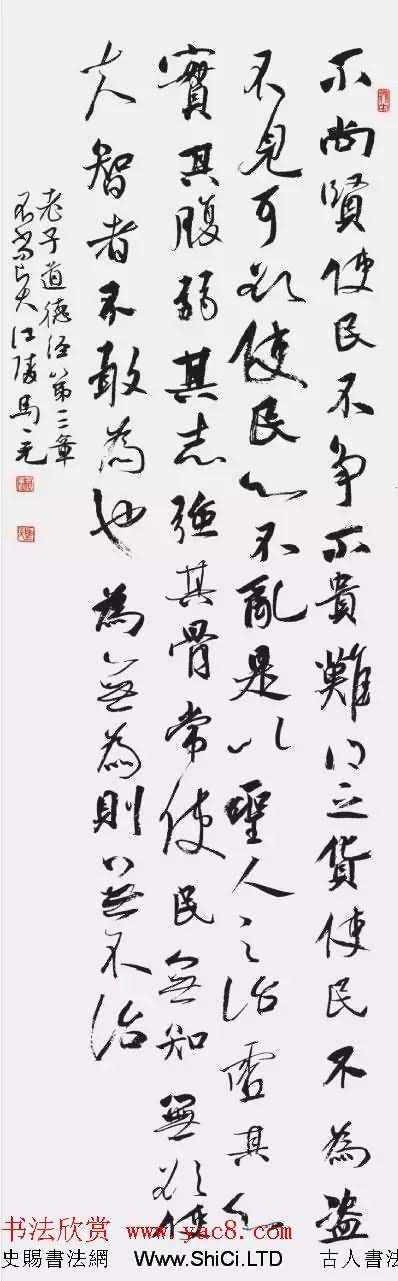 不尚賢使民不争不貴難得之貨使民不為盜
不見可欲使民心不亂是以聖人之治虛其心
實其腹弱其志強其骨常使民無知無欲使
夫智者不敢為也為無為則無不治
老子道德经第三章
不尚贤江陵馬元
书法欣赏 www.yac8.com
史賜書法網 Www.ShiCi.LTD 古人書法